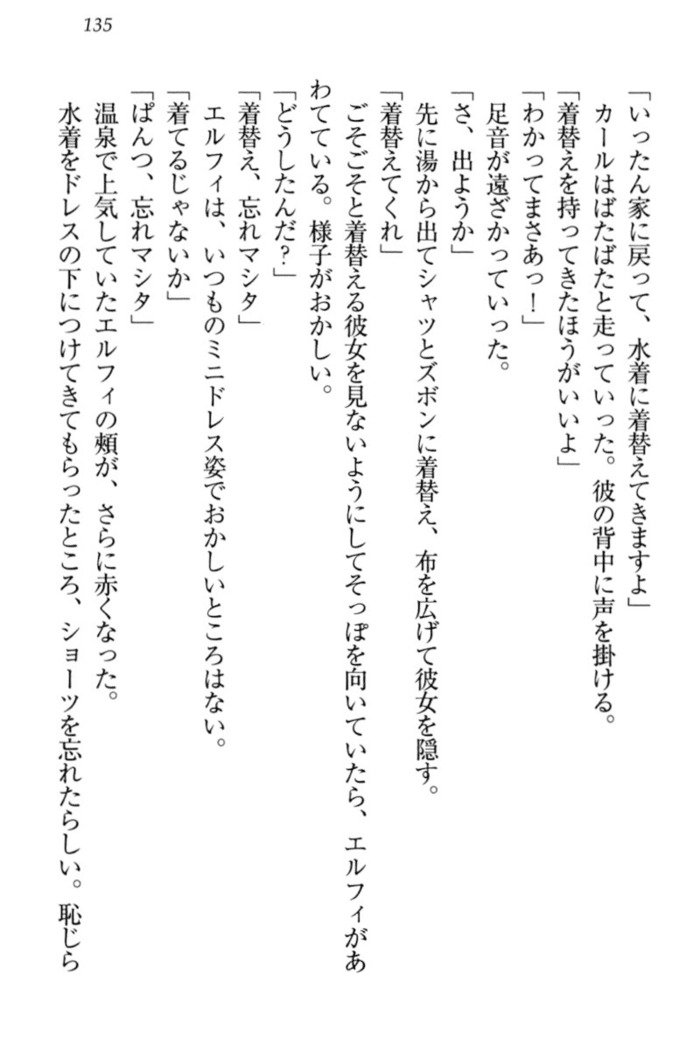 135
「いったん家に戻って、水着に着替えてきますよ」
カールはばたばたと走っていった。彼の背中に声を掛ける。
「着替えを持ってきたほうがいいよ」
「わかってまさあっ！」
足音が遠ざかっていった。
「さ、出ようか」
先に湯から出てシャツとズボンに着替え、布を広げて彼女を隠す。
「着替えてくれ」
ごそごそと着替える彼女を見ないようにしてそっぽを向いていたら、エルフィがあ
わてている。様子がおかしい。
「どうしたんだ？」
「着替え、忘れマシタ」
エルフィは、いつものミニドレス姿でおかしいところはない。
「着てるじゃないか」
「ぱんつ、忘れマシタ」
温泉で上気していたエルフィの頬が、さらに赤くなった。
水着をドレスの下につけてきてもらったところ、ショーツを忘れたらしい。恥じら